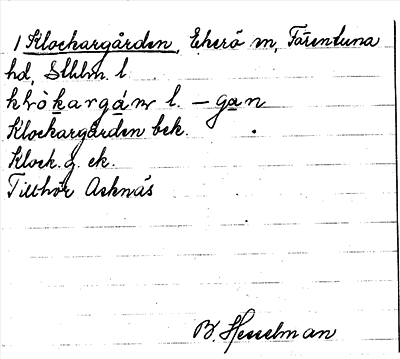 1 Klockargården, Ekerö sn, Färentuna
hd, Sthlm. l.
klòkargáṇ l. – gan
Klockargården bek.
Klock. g. ek.
Tillhör Asknäs
B. Hesselman